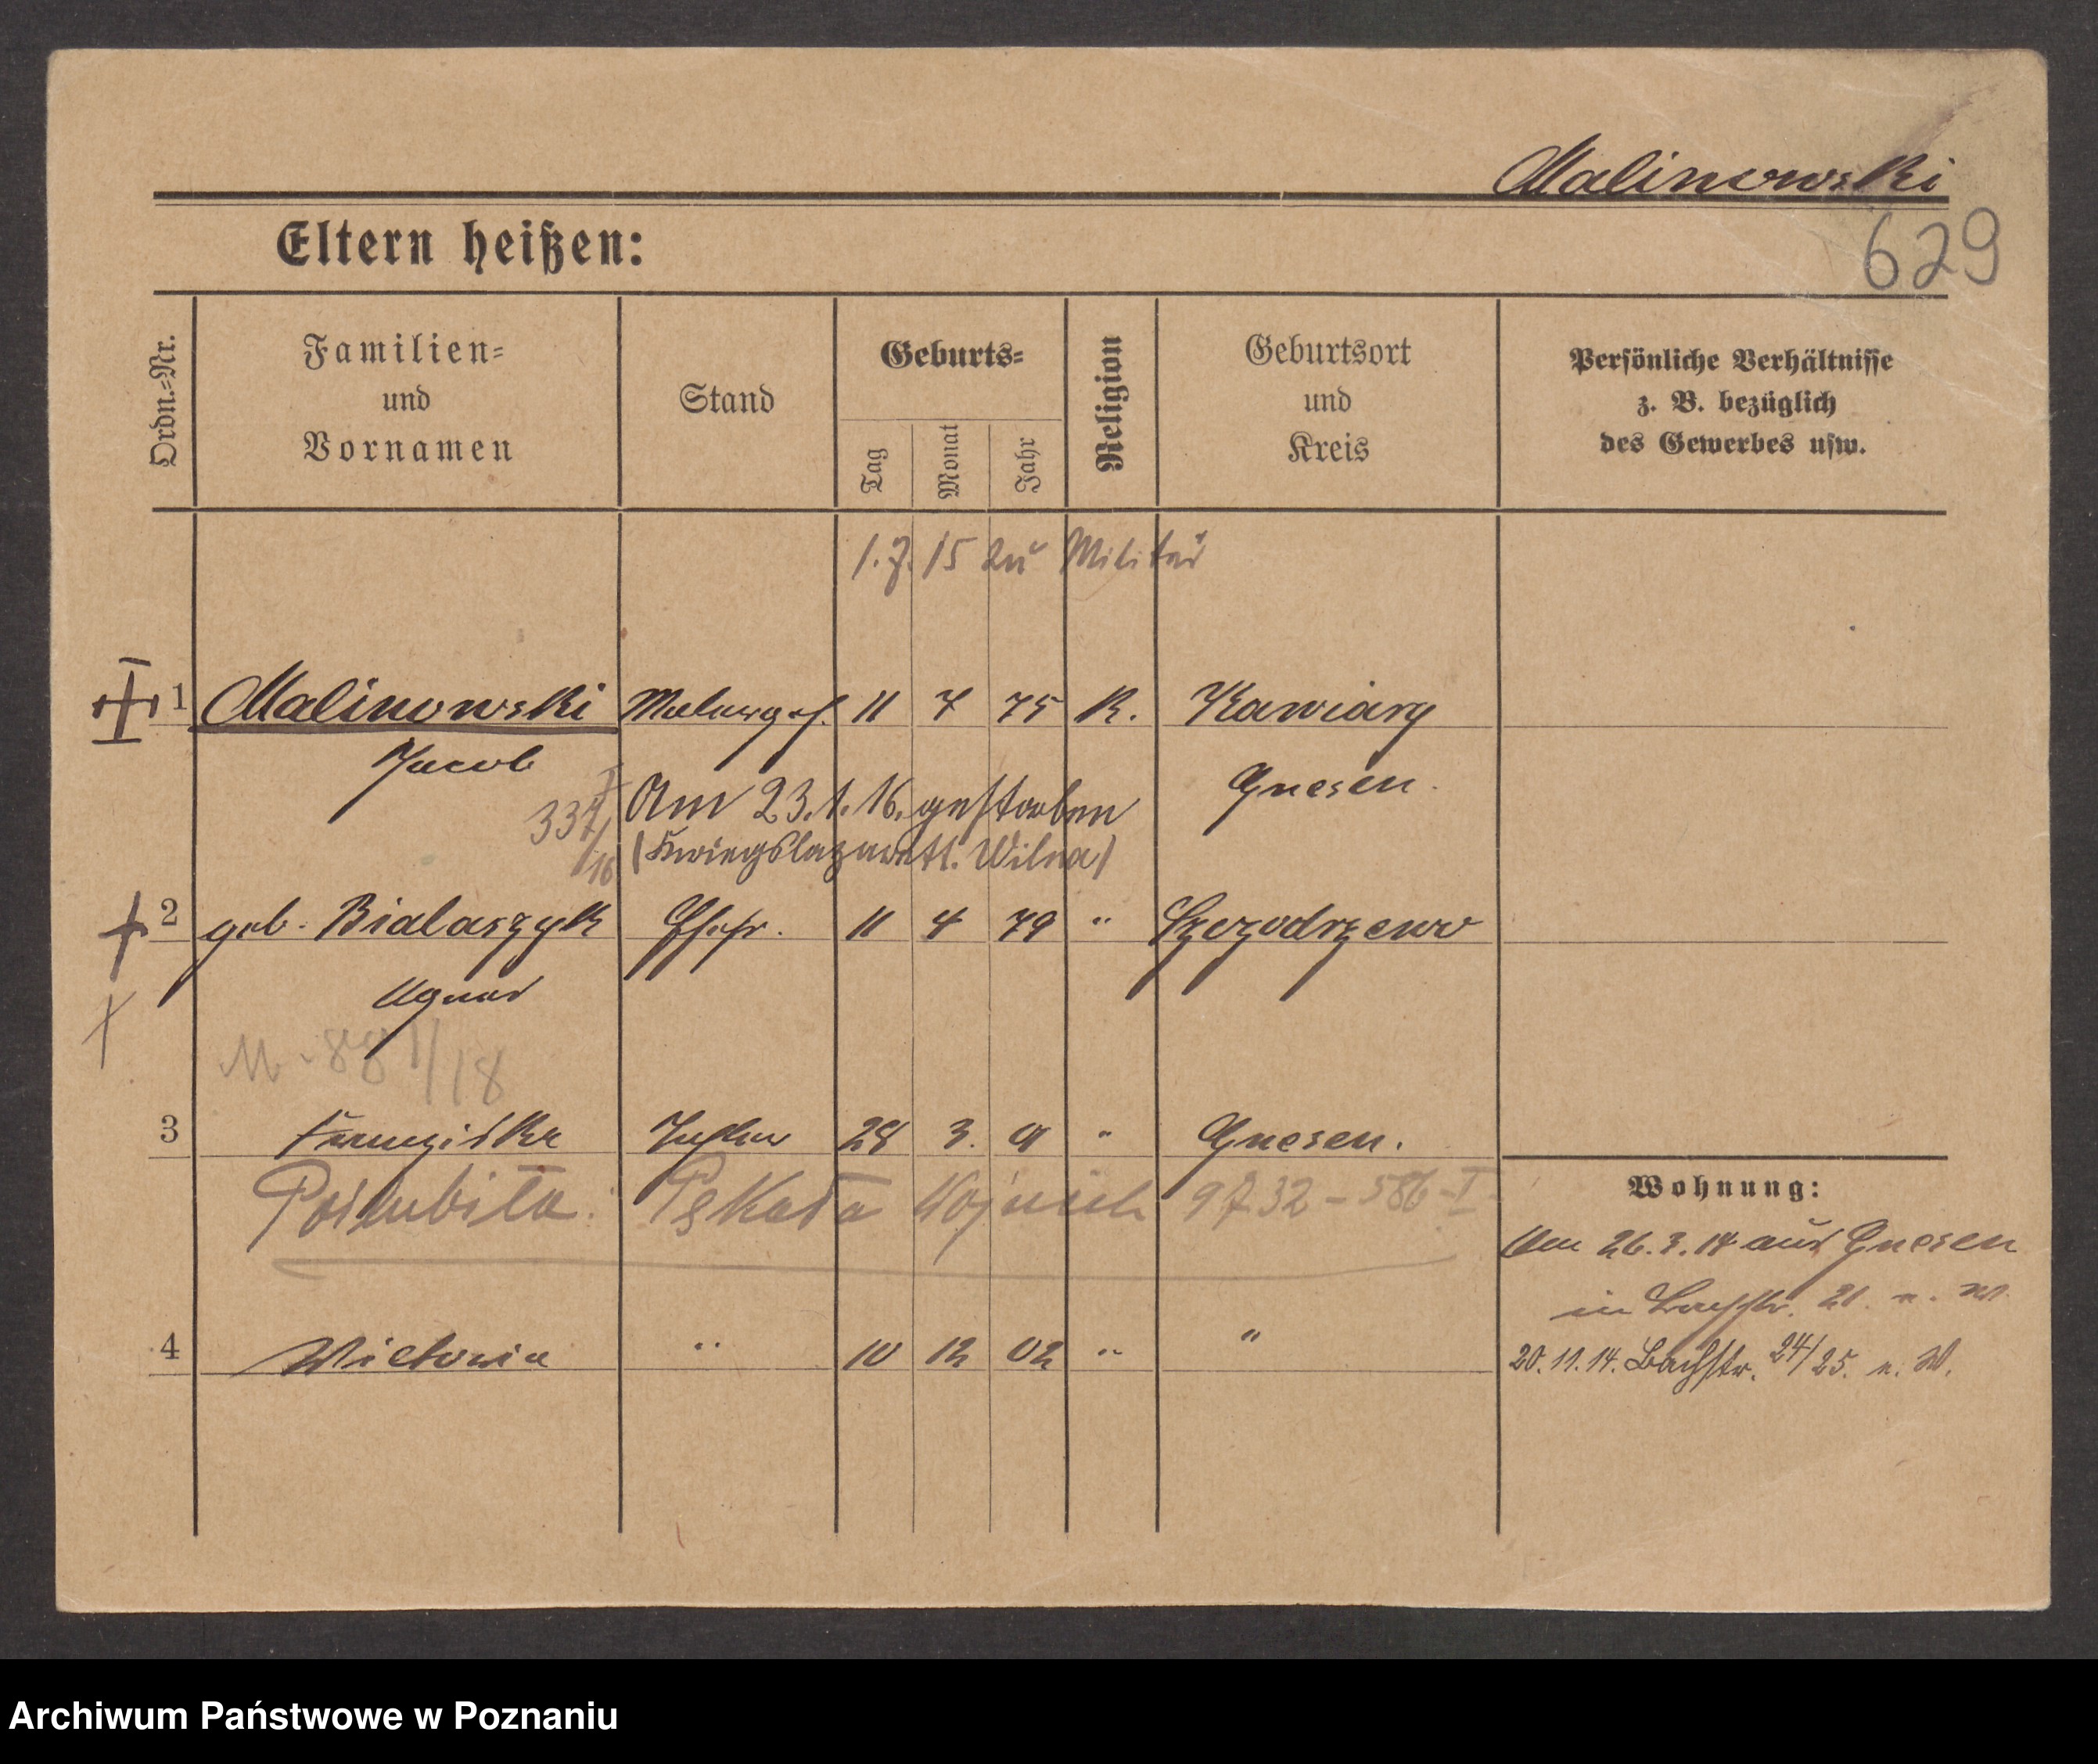 Malinowski
629
Eltern heißen:
Ordn.-Nr.
Familien- und Vornamen
Stand
Geburts-
Tag
Monat
Jahr
Religion
Geburtsort und Kreis
Persönliche Verhältnisse z. B. bezüglich des Gewerbes usw.
1.7.15 zu Militär
1 Malinowski 11 7 75 K. Kawiary
Jacob Gnesen.
337/16 Am 23.1.16. gestorben
(Kriegslazarett. Wilna)
2 geb. Bialaszyk Ehefr. 11 4 79 "
Agnes
M. 881/18
3 Franziska Tochter 28 3. 01 " Gnesen.
Wojciech 9732-586-I
4 Victoria " 10 12 02 " "
Wohnung:
Am 26.3.14 aus Gnesen
in Bachstr. 21. n. W.
20.11.14. Bachstr. 24/25. n. W.
Archiwum Państwowe w Poznaniu